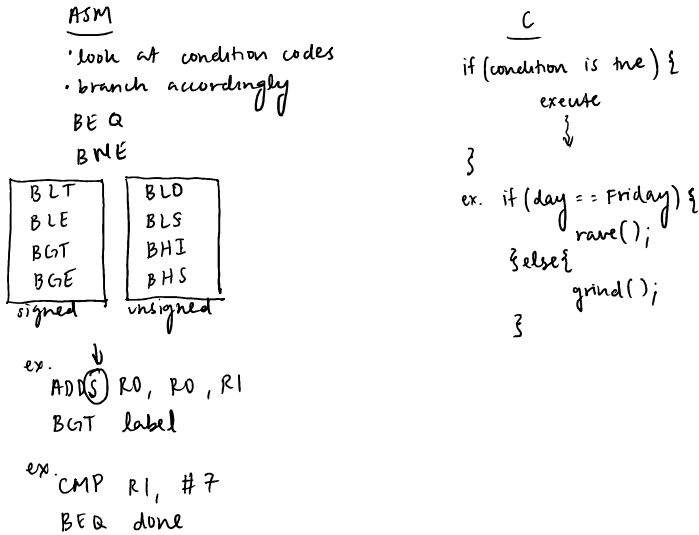 ASM
• look at condition codes
• branch accordingly
BEQ
BNE
BLT
BLE
BGT
BGE
signed
BLO
BLS
BHI
BHS
unsigned
ex.
ADDS R0, R0, R1
BGT label
ex.
CMP R1, #7
BEQ done
C
if (condition is true) {
execute
}
ex. if (day == Friday) {
rave();
}else{
grind();
}